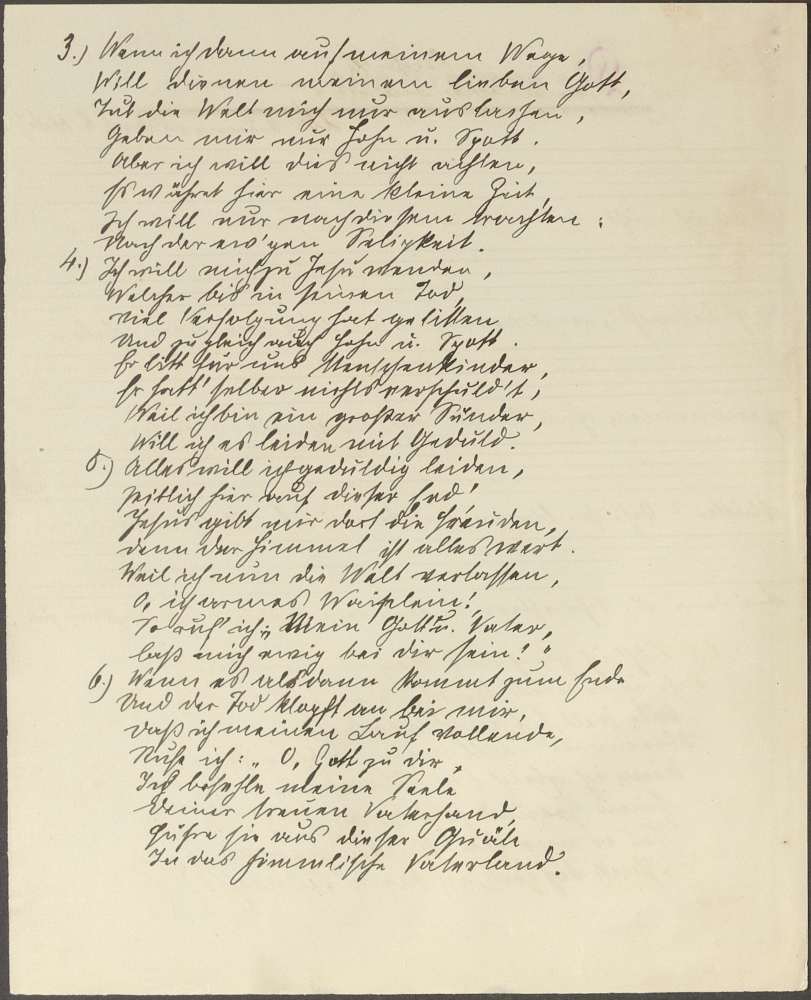 3.) Wenn ich dann auf meinem Wege,
Will dienen meinem lieben Gott,
Tut die Welt mich nur auslachen,
Geben mir nur Hohn u. Spott.
Aber ich will dies nicht achten,
Es währet hier eine kleine Zeit,
Ich will nur nach diesem trachten:
Nach der ew'gen Seligkeit.
4.) Ich will mich zu Jesu wenden,
Welcher bis in seinen Tod,
viel Verfolgung hat gelitten
Und zugleich auch Hohn u. Spott.
Er litt für uns Menschenkinder,
Er hatt' selber nichts verschuld't,
Weil ich bin ein großer Sünder,
Will ich es leiden mit Geduld.
5.) Alles will ich geduldig leiden,
Zeitlich hier auf dieser Erd'
Jesus gibt mir dort die Freuden,
denn der Himmel ist alles wert.
Weil ich nun die Welt verlassen,
O, ich armes Waislein!
So ruf' ich: „Mein Gott u. Vater,
laß mich ewig bei dir sein!"
6.) Wenn es alsdann kommt zum Ende
Und der Tod klopft an bei mir,
Daß ich meinen Lauf vollende,
Rufe ich: „O, Gott zu dir,
Ich befehle meine Seele
Deiner treuen Vaterhand,
Führe sie aus dieser Quäle
In das himmlische Vaterland.